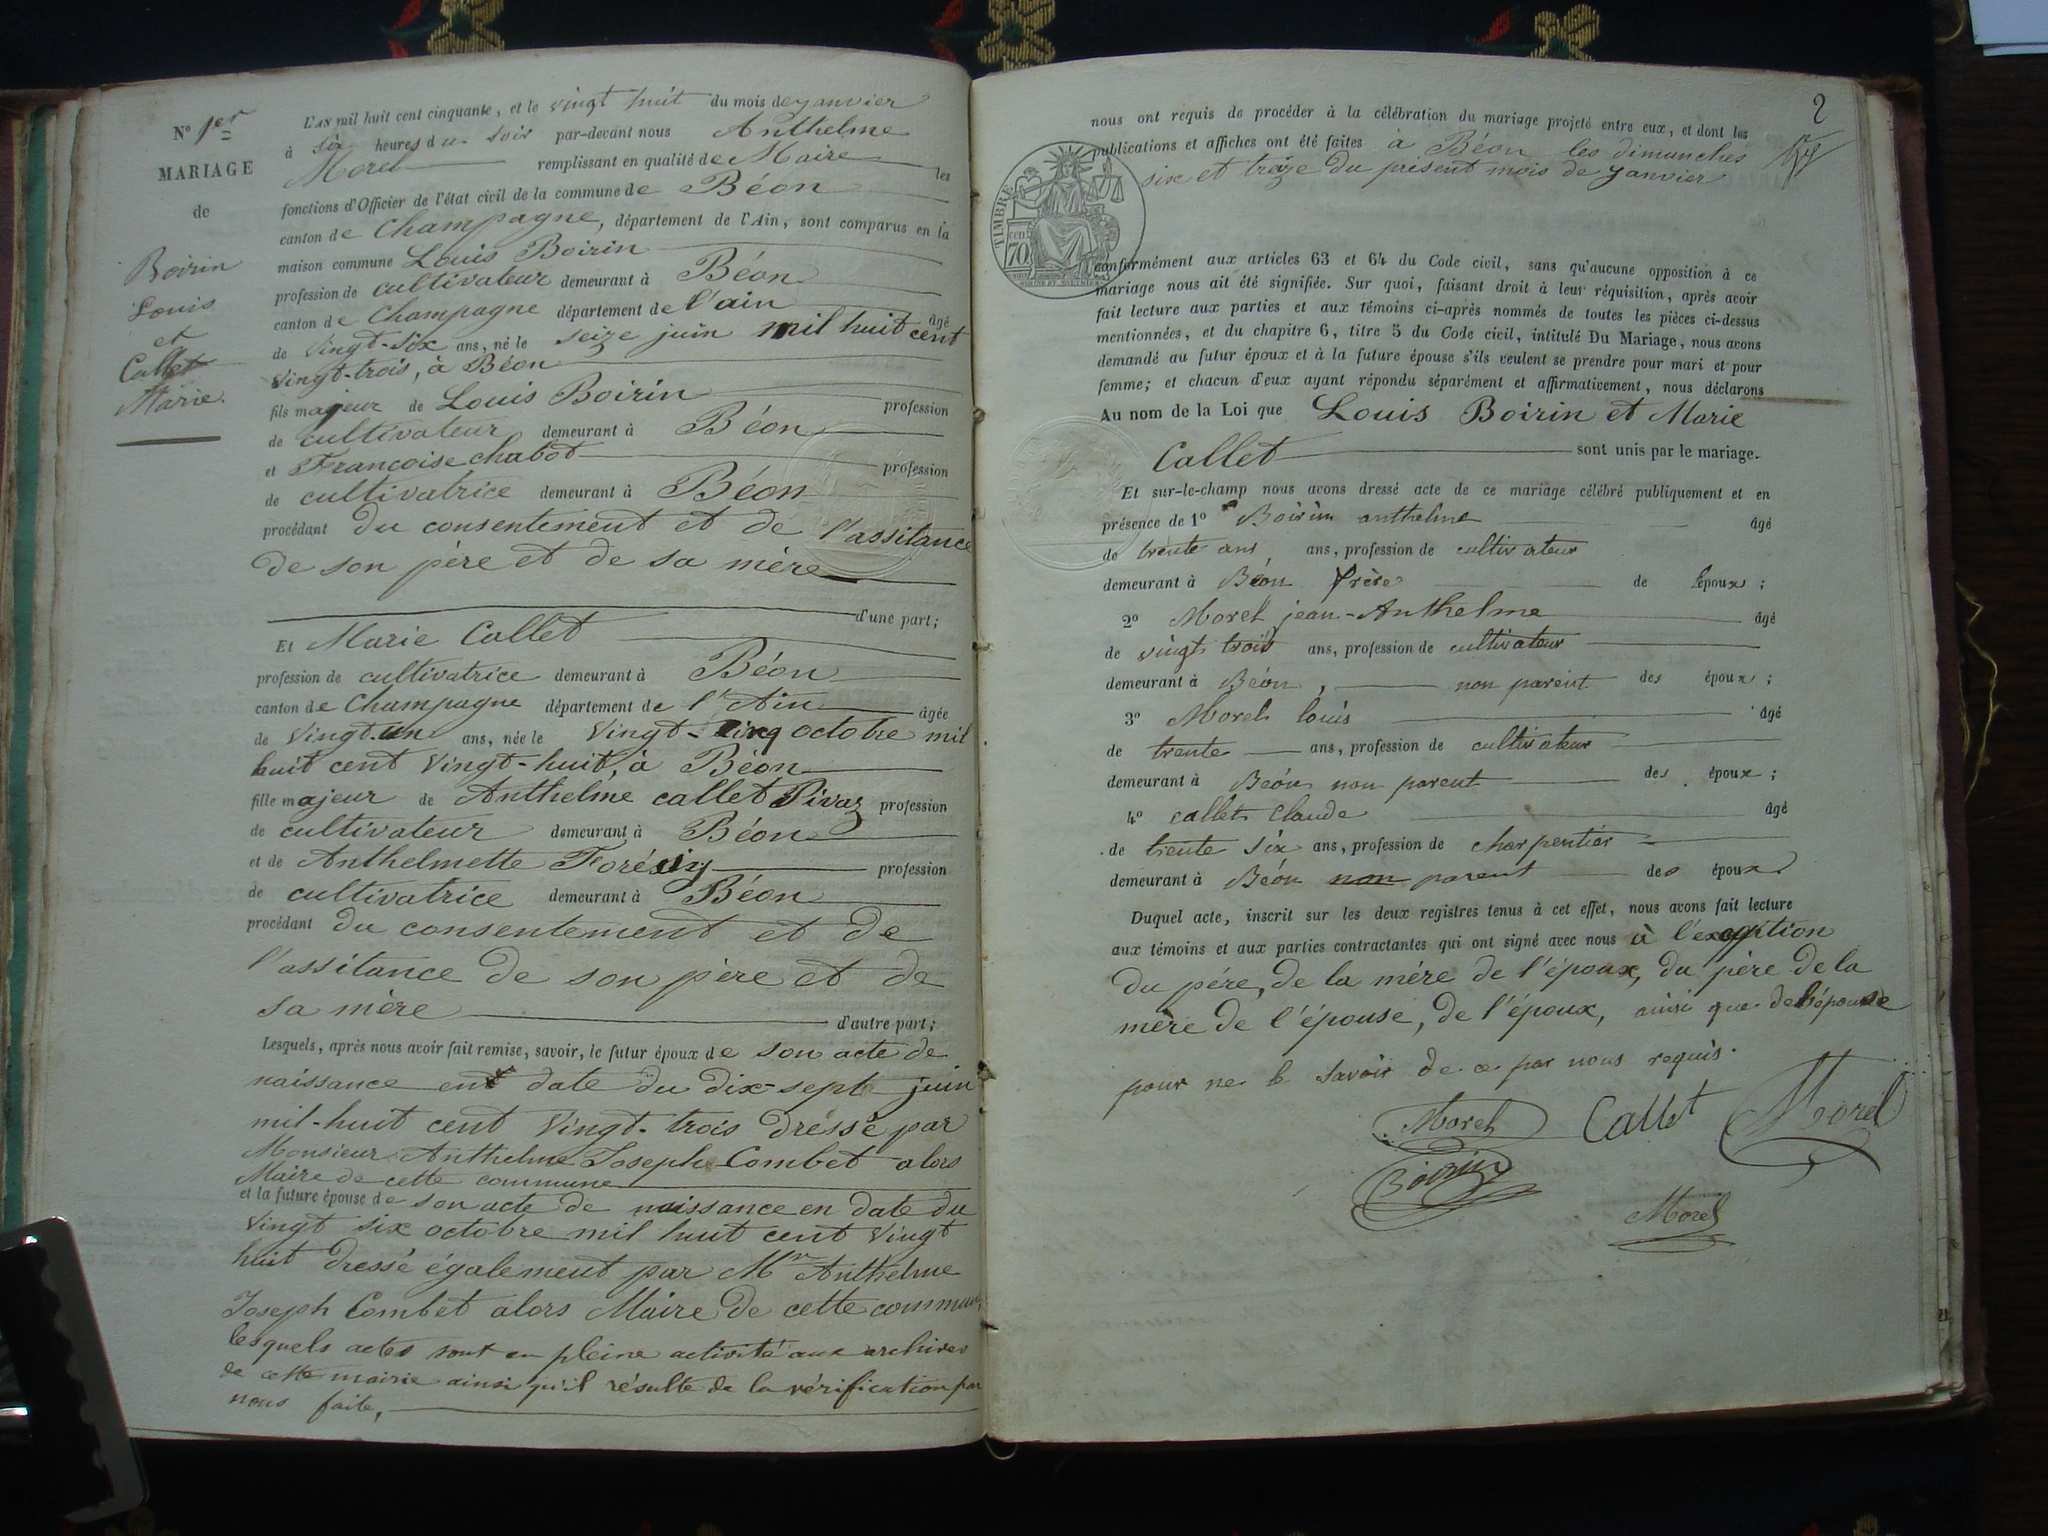 N° 1er
MARIAGE
de
Boirin
Louis
et
Callet
Marie.
L'AN mil huit cent cinquante, et le vingt huit du mois de janvier
à six heures du soir par-devant nous Anthelme
Morel remplissant en qualité de Maire les
fonctions d'Officier de l'état civil de la commune de Béon
canton de Champagne, département de l'Ain, sont comparus en la
maison commune Louis Boirin
profession de cultivateur demeurant à Béon
canton de Champagne département de l'ain âgé
de vingt-six ans, né le seize juin mil huit cent
vingt-trois, à Béon
fils majeur de Louis Boirin profession
de cultivateur demeurant à Béon
et Francoise chabot profession
de cultivatrice demeurant à Béon
procédant du consentement et de l'assitance
de son père et de sa mère
d'une part;
Et Marie Callet
profession de cultivatrice demeurant à Béon
canton de Champagne département de l'Ain âgée
de vingt-un ans, née le vingt-cinq octobre mil
huit cent vingt-huit, à Béon
fille majeur de Anthelme callet Pivaz profession
de cultivateur demeurant à Béon
et de Anthelmette profession
de cultivatrice demeurant à Béon
procédant du consentement et de
l'assitance de son père et de
sa mère d'autre part;
Lesquels, après nous avoir fait remise, savoir, le futur époux de son acte de
naissance en date du dix-sept juin
mil-huit cent vingt-trois dréssé par
Monsieur Anthelme Joseph Combet alors
Maire de cette commune
et la future épouse de son acte de naissance en date du
vingt six octobre mil huit cent vingt
huit dressé également par Mr Anthelme
Joseph Combet alors Maire de cette commune
lesquels actes sont en pleine activité aux archives
de cette mairie ainsi qu'il résulte de la vérification par
nous faite,
2
nous ont requis de procéder à la célébration du mariage projeté entre eux, et dont les
publications et affiches ont été faites à Béon les dimanches
six et treize du présent mois de janvier
TIMBRE
70
conformément aux articles 63 et 64 du Code civil, sans qu'aucune opposition à ce
mariage nous ait été signifiée. Sur quoi, faisant droit à leur réquisition, après avoir
fait lecture aux parties et aux témoins ci-après nommés de toutes les pièces ci-dessus
mentionnées, et du chapitre 6, titre 5 du Code civil, intitulé Du Mariage, nous avons
demandé au futur époux et à la future épouse s'ils veulent se prendre pour mari et pour
femme; et chacun d'eux ayant répondu séparément et affirmativement, nous déclarons
Au nom de la Loi que Louis Boirin et Marie
Callet sont unis par le mariage.
Et sur-le-champ nous avons dressé acte de ce mariage célébré publiquement et en
présence de 1° Boirin anthelme âgé
de trente ans ans, profession de cultivateur
demeurant à Béon frère de l'époux;
2° Morel jean-Anthelme âgé
de vingt trois ans, profession de cultivateur
demeurant à Béon, non parent des époux;
3° Morel louis âgé
de trente ans, profession de cultivateur
demeurant à Béon non parent des époux;
4° callet Claude âgé
de trente six ans, profession de charpentier
demeurant à Béon non parent des époux
Duquel acte, inscrit sur les deux registres tenus à cet effet, nous avons fait lecture
aux témoins et aux parties contractantes qui ont signé avec nous à l'exception
du père, de la mère de l'époux, du père de la
mère de l'épouse, de l'époux, ainsi que de l'épouse
pour ne le savoir de ce par nous requis.
Morel Callet Morel
Boirin
Morel